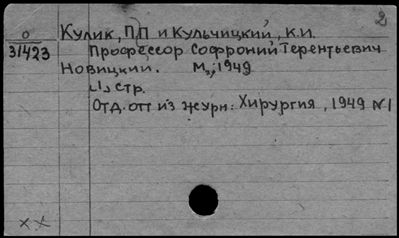 2
О Кулик, П.П и Кульчицкий, К.И.
31423 Профессор Софроний Терентьевич
Новицкий. М., 1949
стр.
Отд. отт из журн: Хирургия, 1949 №1
х х